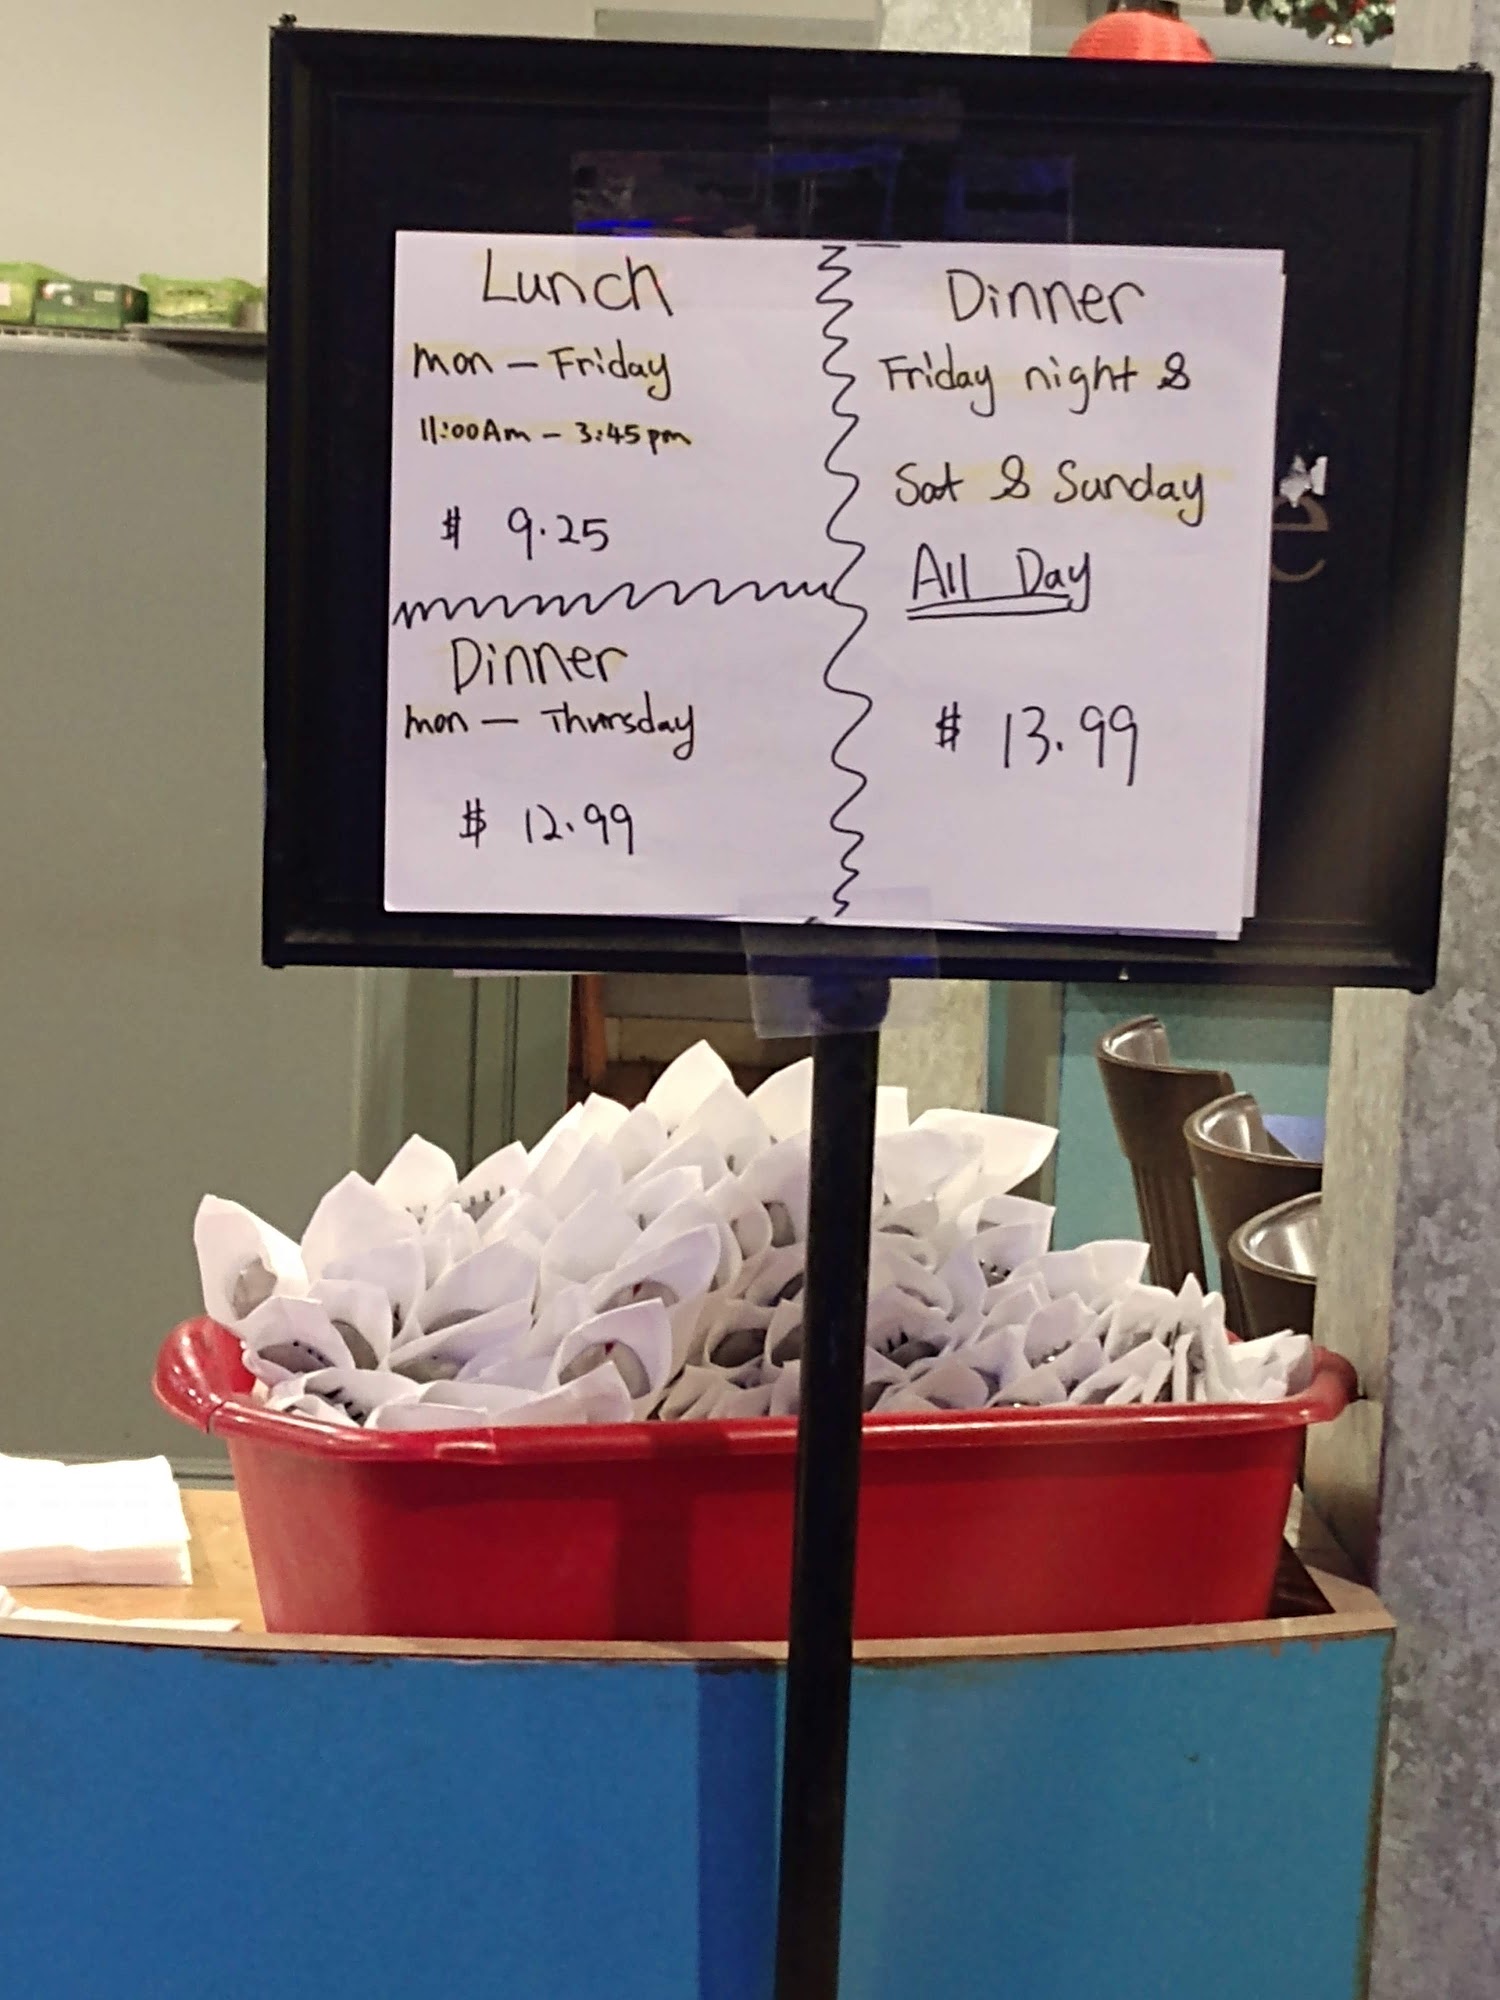 Lunch
mon - Friday
11:00Am - 3:45pm
$ 9.25
Dinner
mon - Thursday
$ 12.99
Dinner
Friday night &
Sat & Sunday
All Day
$ 13.99
e